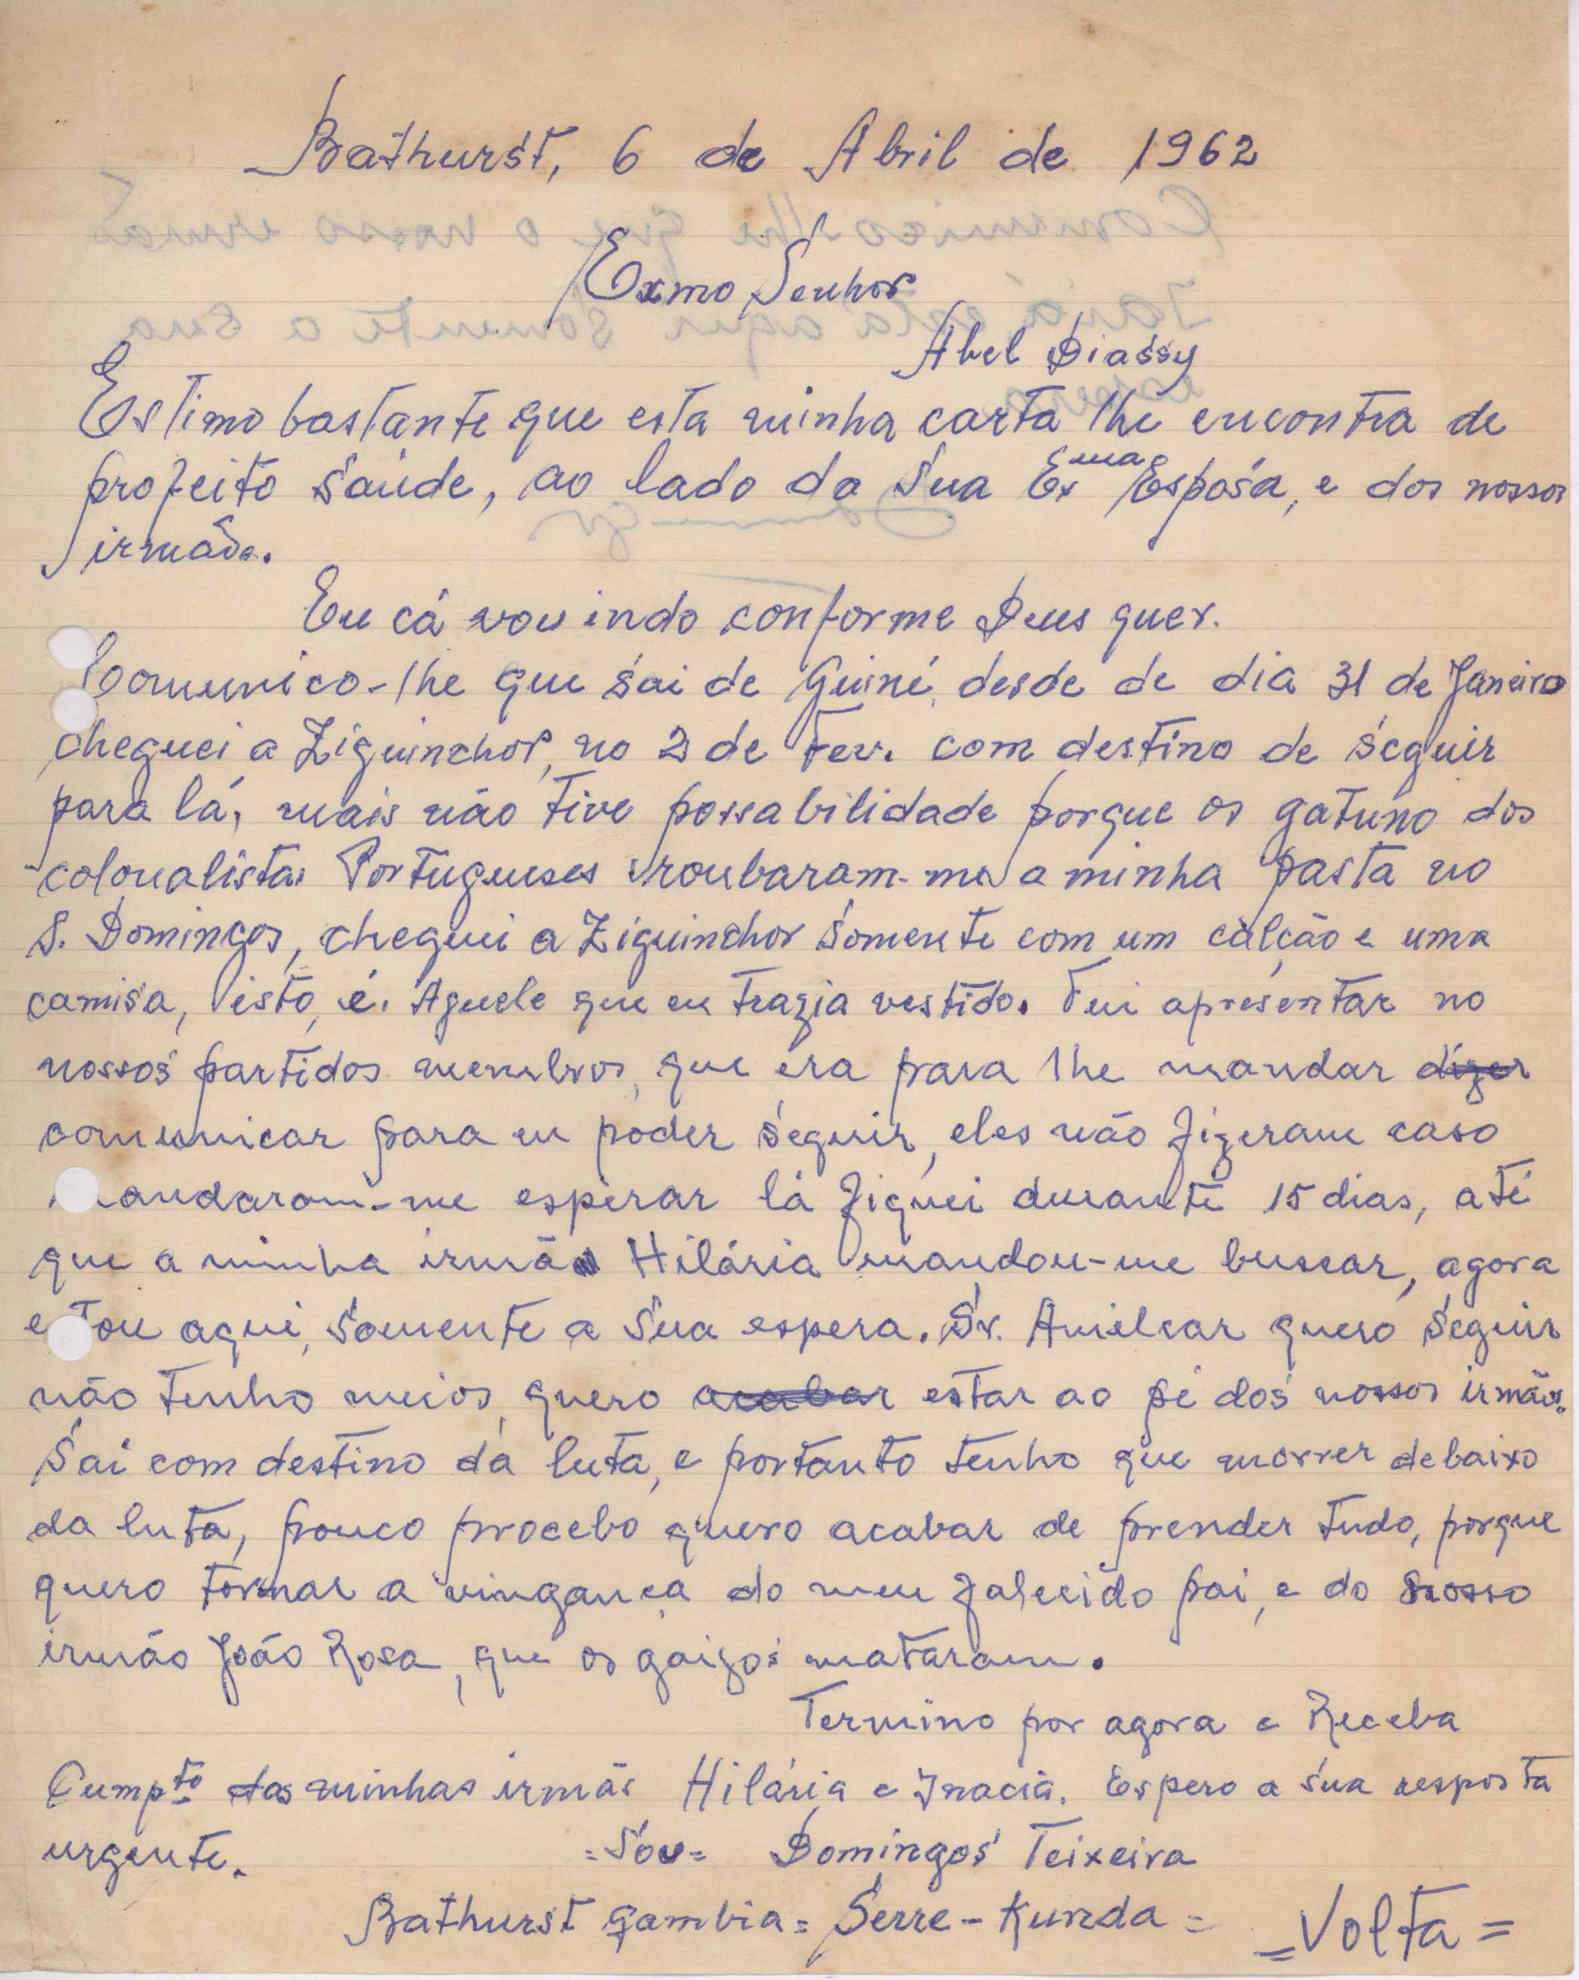 Bathurst, 6 de Abril de 1962
Exmo Senhor
Abel Diassy
Estimo bastante que esta minha carta lhe encontra de
profeito saúde, ao lado da sua Exma Esposa, e dos nossos
irmãos.
Eu cá vou indo conforme Deus quer.
Comunico-lhe que sai de Guiné, desde de dia 31 de Janeiro
cheguei a Ziguinchor, no 2 de Fev. com destino de seguir
para lá, mais não tive possabilidade porque os gatuno dos
colonalistas Portugueses roubaram-me a minha pasta no
S. Domingos, cheguei a Ziguinchor somente com um calção e uma
camisa, isto, é. Aquele que eu trazia vestido. Fui apresentar no
nossos partidos membros, que era para lhe mandar dizer
comunicar para eu poder seguir, eles não fizeram caso
mandaram-me esperar lá fiquei durante 15 dias, até
que a minha irmã Hilária mandou-me buscar, agora
estou aqui, somente a sua espera. Sr. Amilcar quero seguir
não tenho meios, quero acabar estar ao pé dos nossos irmãos.
Sai com destino da luta, e portanto tenho que morrer debaixo
da luta, pouco procebo quero acabar de prender tudo, porque
quero tormar a vingança do meu falecido pai, e do nosso
irmão João Rosa, que os gaizos mataram.
Termino por agora e Receba
Cumpto das minhas irmãs Hilária e Inacia. Espero a sua resposta
urgente. =Sou= Domingos Teixeira
Bathurst Gambia = Serre-Kunda =
=Volta=